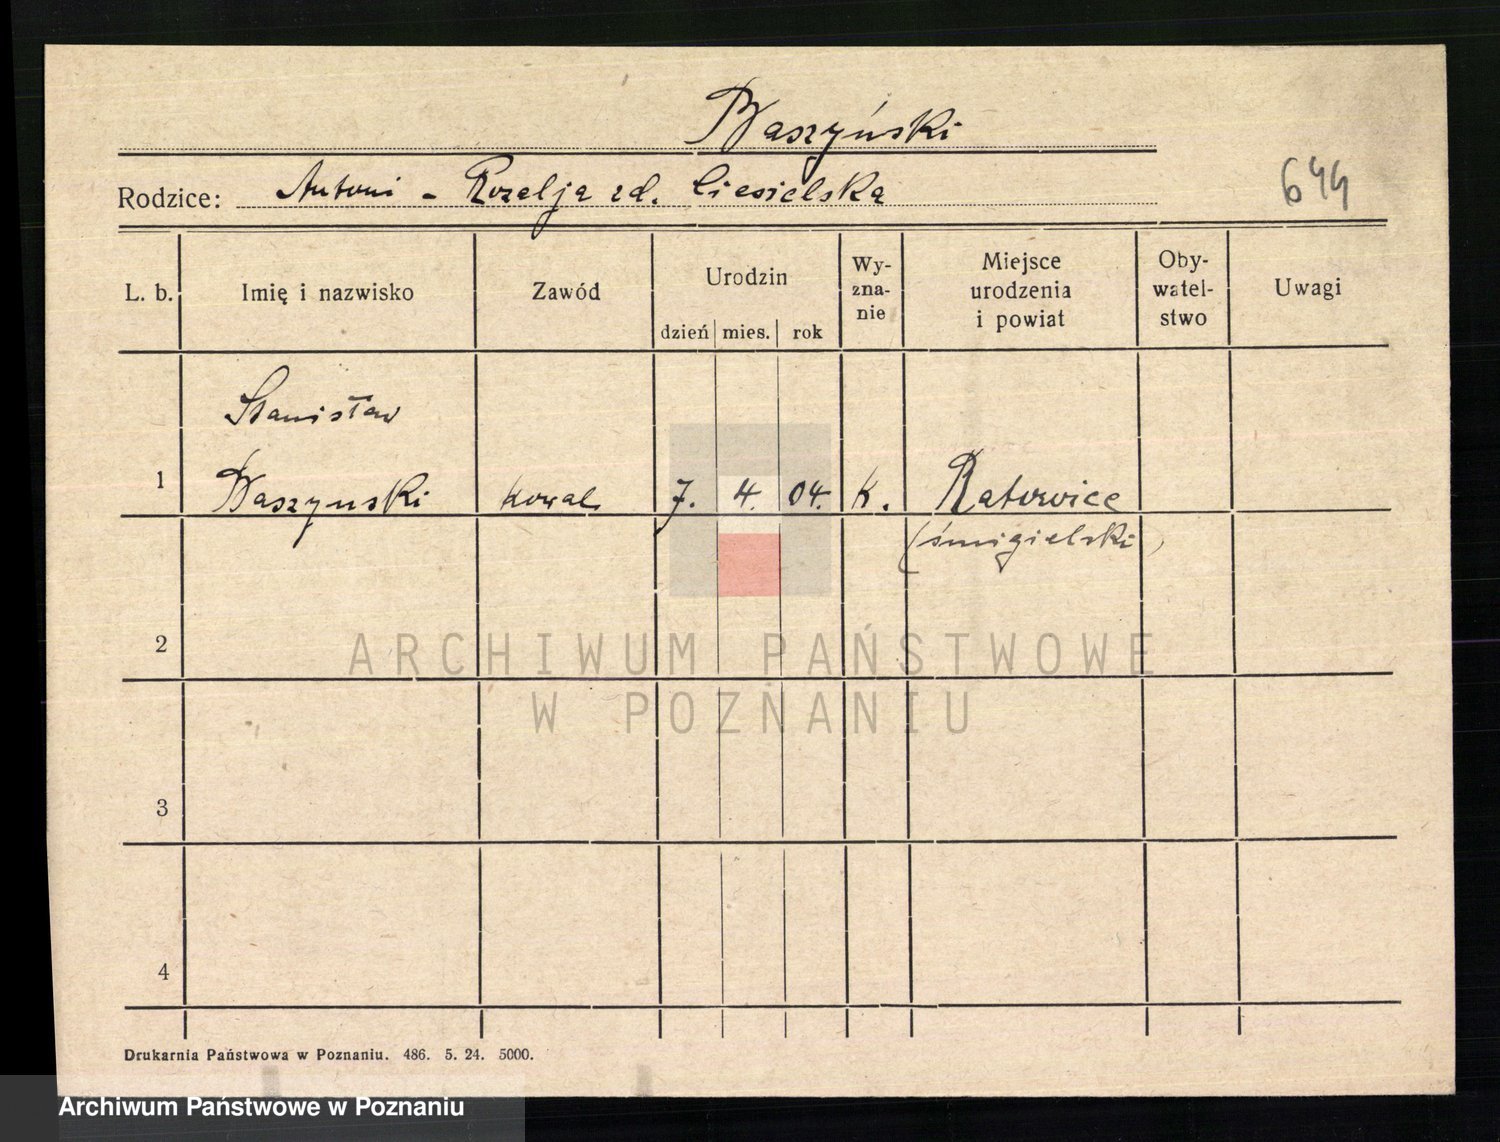 Baszyński
Rodzice: Antoni - Rozalja zd. Ciesielska
644
L. b. Imię i nazwisko Zawód Urodzin dzień mies. rok Wy-zna-nie Miejsce urodzenia i powiat Oby-watel-stwo Uwagi
Stanisław
1 Baszynski kowal 7. 4. 04. k. Ratowice
(śmigielski)
2
ARCHIWUM PAŃSTWOWE
W POZNANIU
3
4
Drukarnia Państwowa w Poznaniu. 486. 5. 24. 5000.
Archiwum Państwowe w Poznaniu